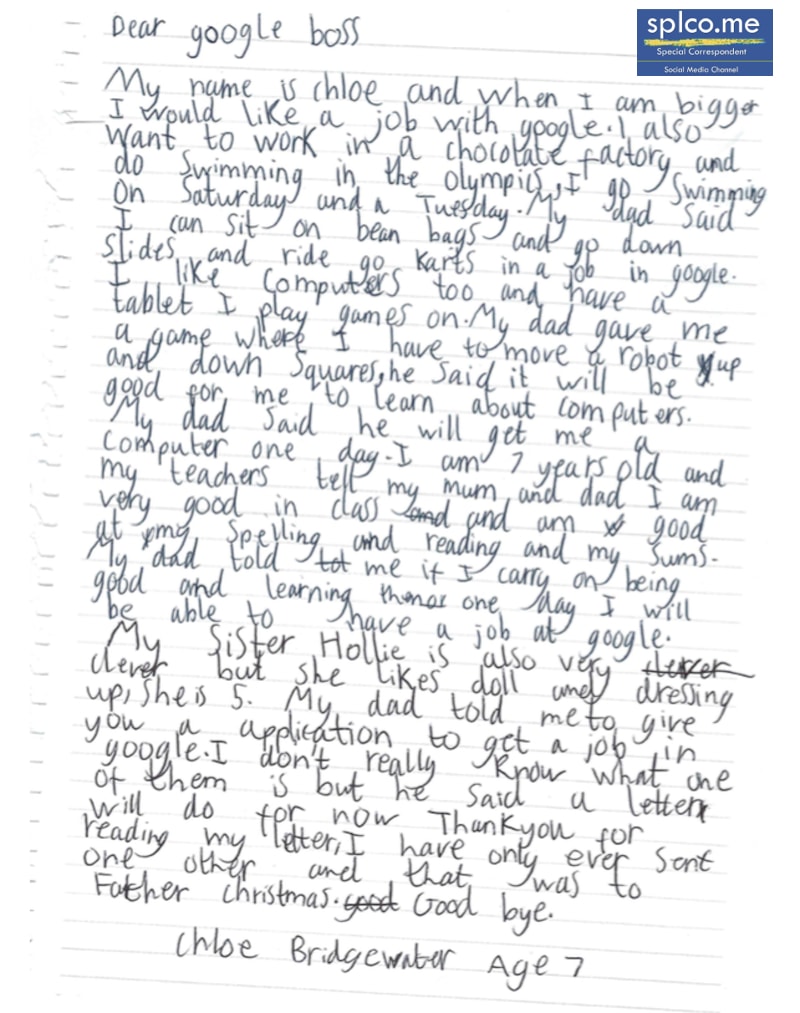 splco.me
Special Correspondent
Social Media Channel
Dear google boss
My name is chloe and when I am bigger
I would like a job with google. I also
want to work in a chocolate factory and
do Swimming in the olympics, I go Swimming
on Saturday and a Tuesday. My dad said
I can sit on bean bags and go down
slides and ride go karts in a job in google.
I like computers too and have a
tablet I play games on. My dad gave me
a game where I have to move a robot up
and down squares, he said it will be
good for me to learn about computers.
My dad said he will get me a
computer one day. I am 7 years old and
my teachers tell my mum and dad I am
very good in class and and am good
at my spelling and reading and my sums.
My dad told tot me if I carry on being
good and learning one day I will
be able to have a job at google.
My Sister Hollie is also very clever
clever but she likes doll and dressing
up, she is 5. My dad told me to give
you a application to get a job in
google. I don't really know what one
of them is but he said a letter
will do for now Thankyou for
reading my letter, I have only ever sent
one other and that was to
Father christmas. good Good bye.
Chloe Bridgewater Age 7